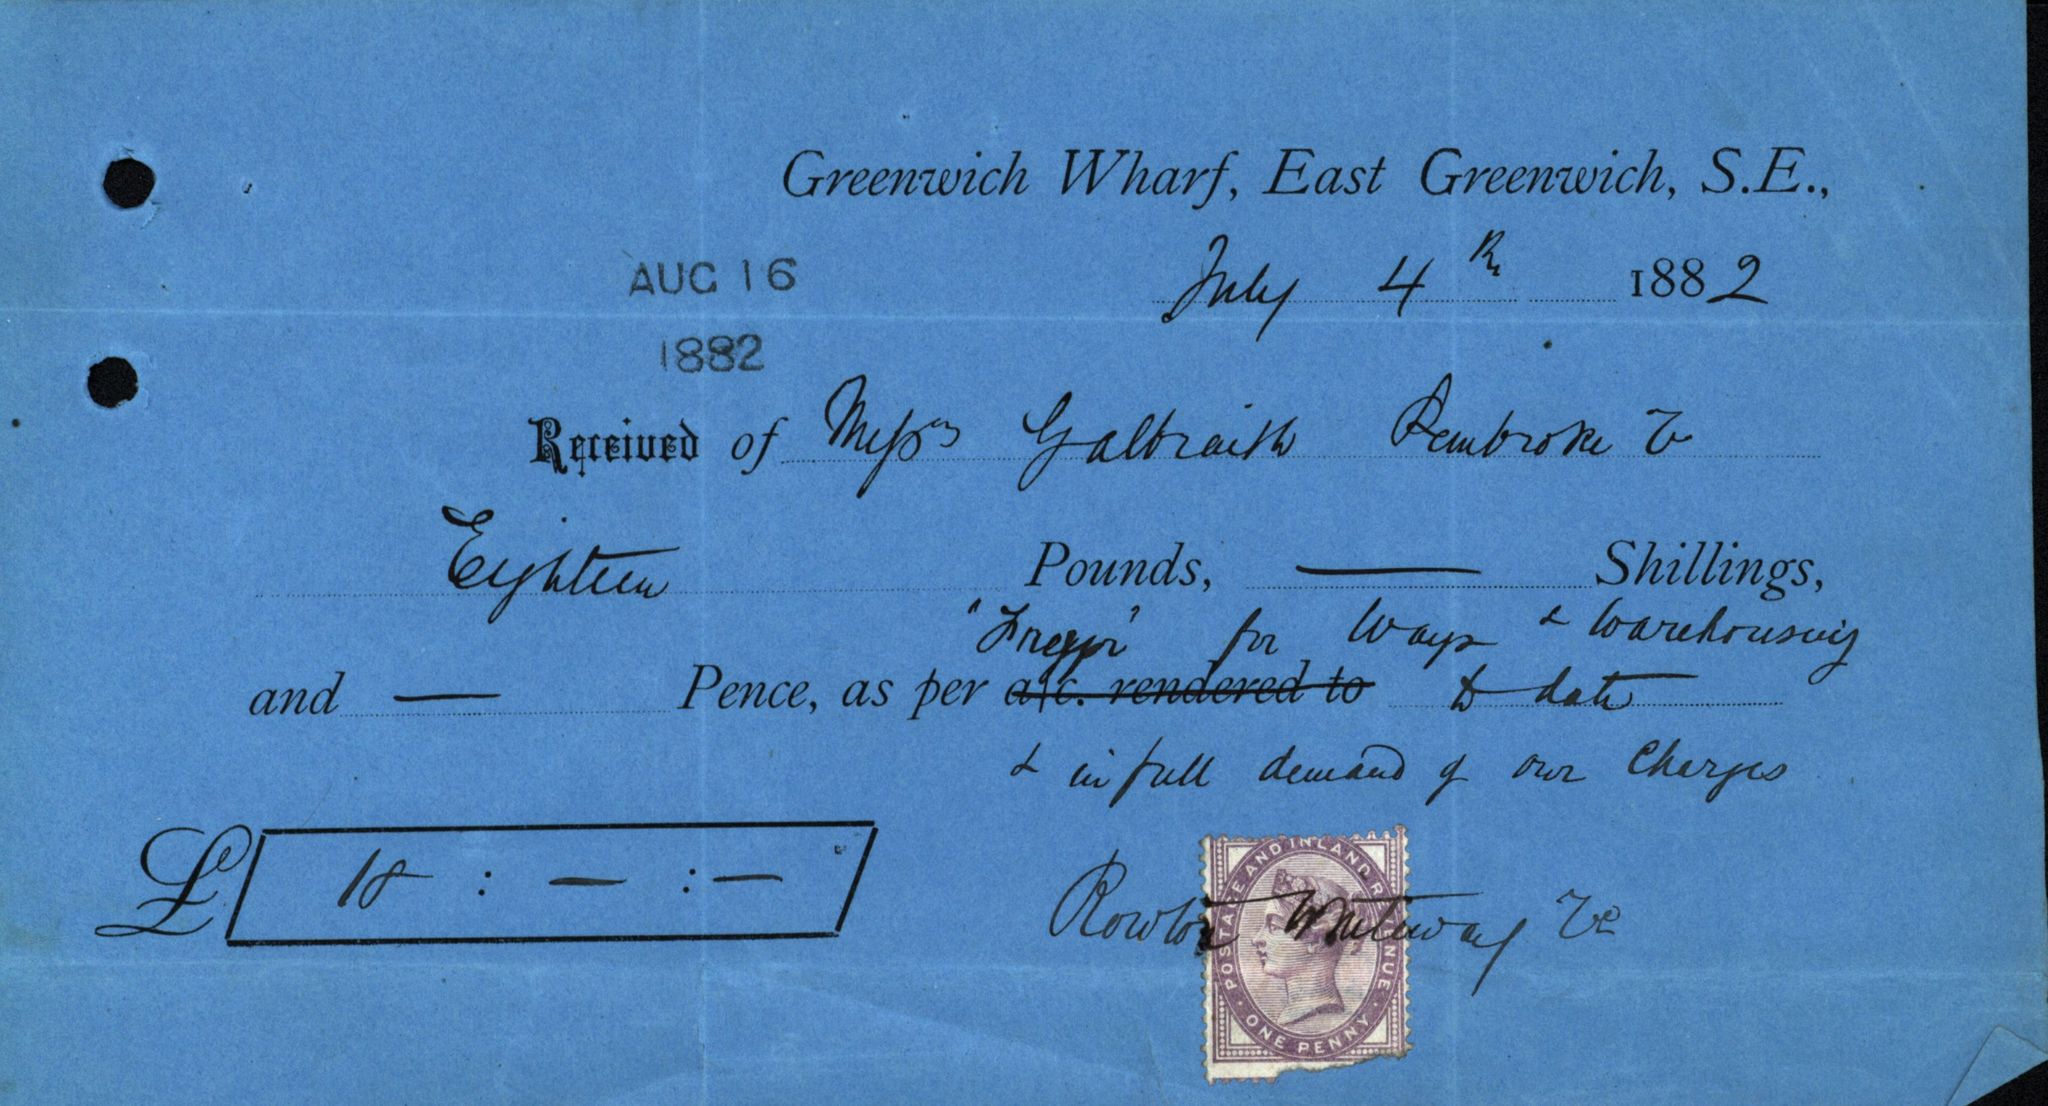 Greenwich Wharf, East Greenwich, S.E.,
AUG 16
1882
July 4th 1882
Received of Messrs Galbraith Pembroke &
Eighteen Pounds, — Shillings,
for Ways & Warehousing
and — Pence, as per a/c. rendered to to date
& in full demand of our Charges
£ 18 : — : —
Rowton Whiteway &c
POSTAGE AND INLAND REVENUE
ONE PENNY